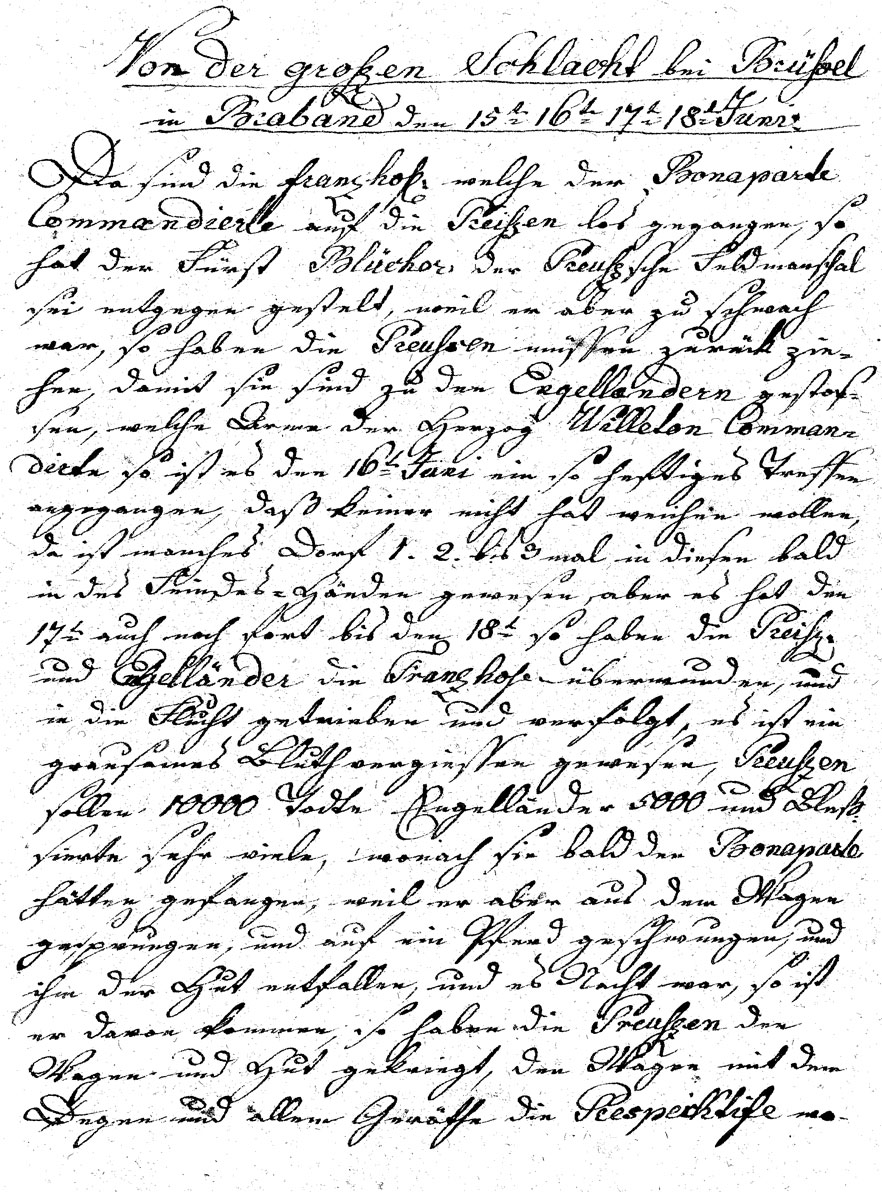 Von der großen Schlacht bei Brüssel
in Braband den 15t 16t 17t 18t Juni
Da sind die französ: welche der Bonaparte
Commandierte auf die Preißzen los gegangen, so
hat der Fürst Blücher, der Preußsche Feldmarschal
sei entgegen gestelt, weil er aber zu schwach
war, so haben die Preussen müssen zurück zie-
hen, damit sie sind zu den Engelländern gestos-
sen, welche Arme der Herzog Willeton Comman-
dirte so ist es den 16t Juni ein so heftiges Treffen
angegangen, daß keiner nicht hat weichen wollen,
da ist manches Dorf 1. 2. bis 3 mal in diesen bald
in des Feindes-Händen gewesen, aber es hat den
17t auch noch fort bis den 18t so haben die Preisz:
und Engelländer die Franzhose überwunden, und
in die Flucht getrieben und verfolgt, es ist ein
grausames Bluthvergiessen gewesen, Preuszen
sollen 10000 Todte Engelländer 5000 und Bleß-
sierte sehr viele, wonach sie bald den Bonaparte
hätten gefangen, weil er aber aus dem Wagen
gesprungen, und auf ein Pferd geschwungen, und
ihm der Hut entfallen, und es Nacht war, so ist
er davon kommen, so haben die Preuszen den
Wagen und Hut gekriegt, den Wagen mit dem
Degen und allem Geräthe die Prespecktife wo-